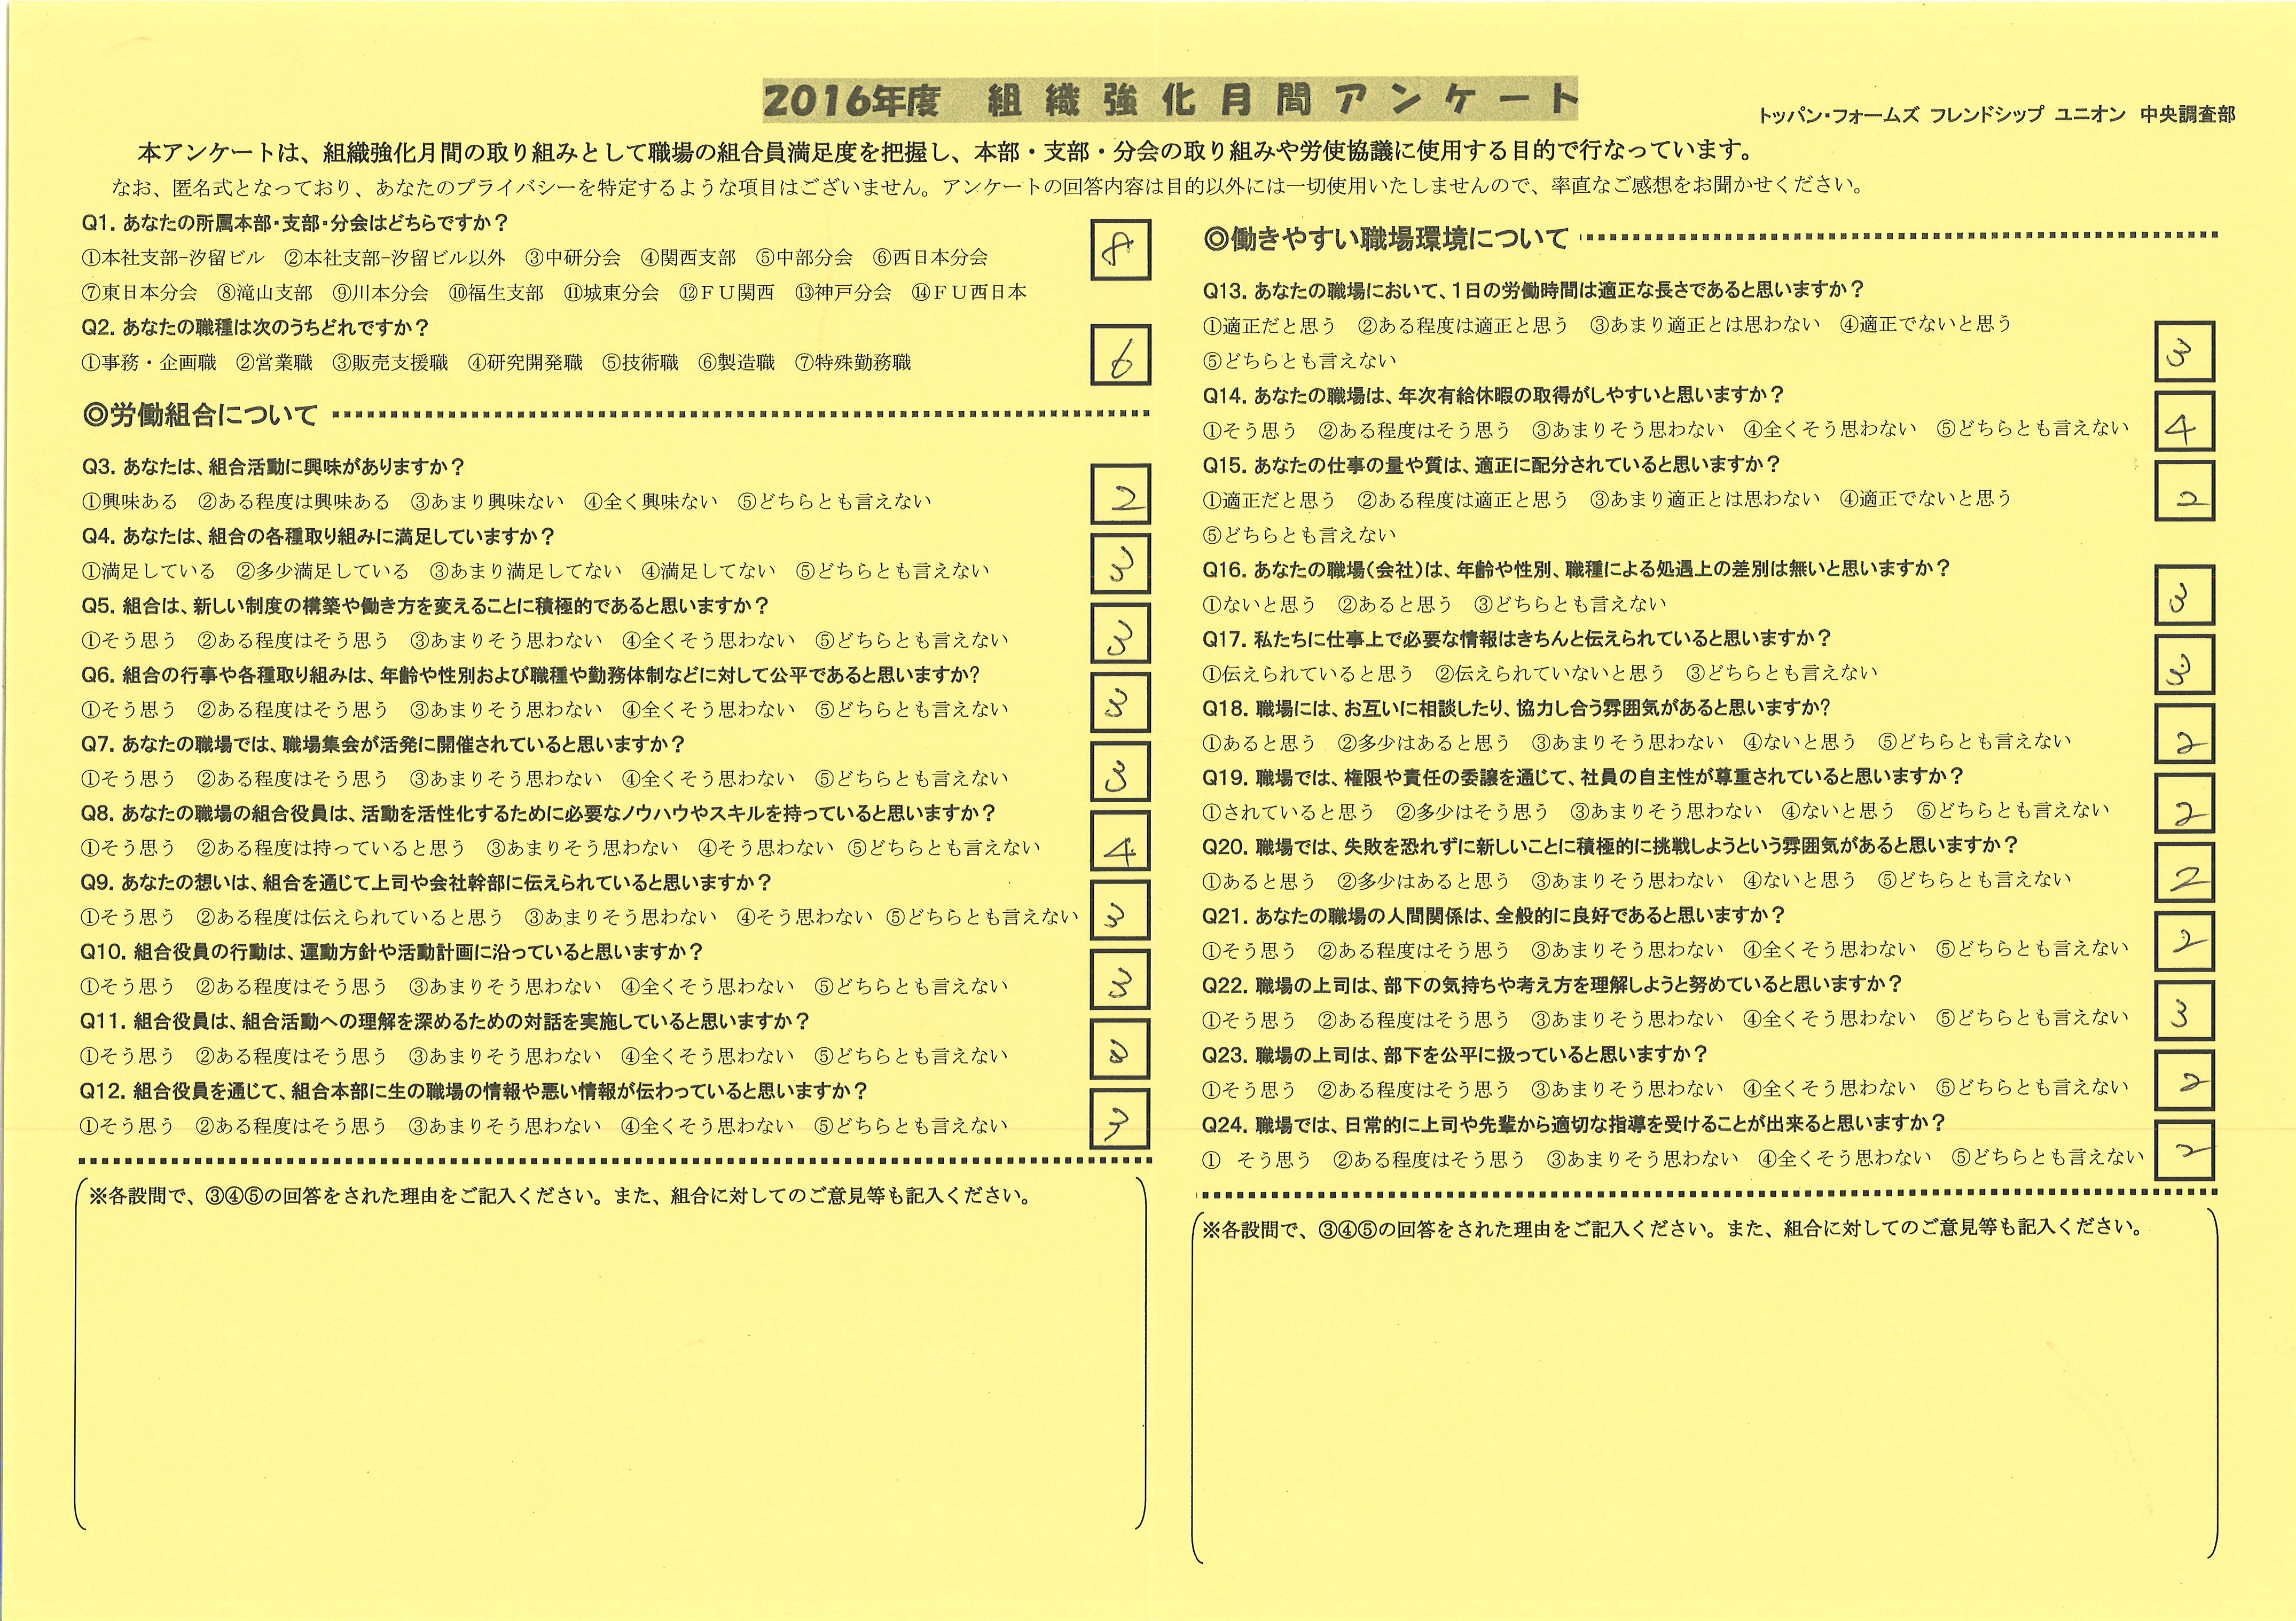 2016年度　組織強化月間アンケート
トッパン・フォームズ フレンドシップ ユニオン 中央調査部
本アンケートは、組織強化月間の取り組みとして職場の組合員満足度を把握し、本部・支部・分会の取り組みや労使協議に使用する目的で行なっています。
なお、匿名式となっており、あなたのプライバシーを特定するような項目はございません。アンケートの回答内容は目的以外には一切使用いたしませんので、率直なご感想をお聞かせください。
Q1. あなたの所属本部・支部・分会はどちらですか？
①本社支部-汐留ビル　②本社支部-汐留ビル以外　③中研分会　④関西支部　⑤中部分会　⑥西日本分会
8
⑦東日本分会　⑧滝山支部　⑨川本分会　⑩福生支部　⑪城東分会　⑫ＦＵ関西　⑬神戸分会　⑭ＦＵ西日本
Q2. あなたの職種は次のうちどれですか？
①事務・企画職　②営業職　③販売支援職　④研究開発職　⑤技術職　⑥製造職　⑦特殊勤務職
6
◎労働組合について
Q3. あなたは、組合活動に興味がありますか？
①興味ある　②ある程度は興味ある　③あまり興味ない　④全く興味ない　⑤どちらとも言えない
2
Q4. あなたは、組合の各種取り組みに満足していますか？
①満足している　②多少満足している　③あまり満足してない　④満足してない　⑤どちらとも言えない
3
Q5. 組合は、新しい制度の構築や働き方を変えることに積極的であると思いますか？
①そう思う　②ある程度はそう思う　③あまりそう思わない　④全くそう思わない　⑤どちらとも言えない
3
Q6. 組合の行事や各種取り組みは、年齢や性別および職種や勤務体制などに対して公平であると思いますか?
①そう思う　②ある程度はそう思う　③あまりそう思わない　④全くそう思わない　⑤どちらとも言えない
3
Q7. あなたの職場では、職場集会が活発に開催されていると思いますか？
①そう思う　②ある程度はそう思う　③あまりそう思わない　④全くそう思わない　⑤どちらとも言えない
3
Q8. あなたの職場の組合役員は、活動を活性化するために必要なノウハウやスキルを持っていると思いますか？
①そう思う　②ある程度は持っていると思う　③あまりそう思わない　④そう思わない　⑤どちらとも言えない
4
Q9. あなたの想いは、組合を通じて上司や会社幹部に伝えられていると思いますか？
①そう思う　②ある程度は伝えられていると思う　③あまりそう思わない　④そう思わない　⑤どちらとも言えない
3
Q10. 組合役員の行動は、運動方針や活動計画に沿っていると思いますか？
①そう思う　②ある程度はそう思う　③あまりそう思わない　④全くそう思わない　⑤どちらとも言えない
3
Q11. 組合役員は、組合活動への理解を深めるための対話を実施していると思いますか？
①そう思う　②ある程度はそう思う　③あまりそう思わない　④全くそう思わない　⑤どちらとも言えない
Q12. 組合役員を通じて、組合本部に生の職場の情報や悪い情報が伝わっていると思いますか？
①そう思う　②ある程度はそう思う　③あまりそう思わない　④全くそう思わない　⑤どちらとも言えない
3
※各設問で、③④⑤の回答をされた理由をご記入ください。また、組合に対してのご意見等も記入ください。
◎働きやすい職場環境について
Q13. あなたの職場において、1日の労働時間は適正な長さであると思いますか？
①適正だと思う　②ある程度は適正と思う　③あまり適正とは思わない　④適正でないと思う
⑤どちらとも言えない
3
Q14. あなたの職場は、年次有給休暇の取得がしやすいと思いますか？
①そう思う　②ある程度はそう思う　③あまりそう思わない　④全くそう思わない　⑤どちらとも言えない
4
Q15. あなたの仕事の量や質は、適正に配分されていると思いますか？
①適正だと思う　②ある程度は適正と思う　③あまり適正とは思わない　④適正でないと思う
2
⑤どちらとも言えない
Q16. あなたの職場（会社）は、年齢や性別、職種による処遇上の差別は無いと思いますか？
①ないと思う　②あると思う　③どちらとも言えない
3
Q17. 私たちに仕事上で必要な情報はきちんと伝えられていると思いますか？
①伝えられていると思う　②伝えられていないと思う　③どちらとも言えない
3
Q18. 職場には、お互いに相談したり、協力し合う雰囲気があると思いますか?
①あると思う　②多少はあると思う　③あまりそう思わない　④ないと思う　⑤どちらとも言えない
2
Q19. 職場では、権限や責任の委譲を通じて、社員の自主性が尊重されていると思いますか？
①されていると思う　②多少はそう思う　③あまりそう思わない　④ないと思う　⑤どちらとも言えない
2
Q20. 職場では、失敗を恐れずに新しいことに積極的に挑戦しようという雰囲気があると思いますか？
①あると思う　②多少はあると思う　③あまりそう思わない　④ないと思う　⑤どちらとも言えない
2
Q21. あなたの職場の人間関係は、全般的に良好であると思いますか？
①そう思う　②ある程度はそう思う　③あまりそう思わない　④全くそう思わない　⑤どちらとも言えない
2
Q22. 職場の上司は、部下の気持ちや考え方を理解しようと努めていると思いますか？
①そう思う　②ある程度はそう思う　③あまりそう思わない　④全くそう思わない　⑤どちらとも言えない
3
Q23. 職場の上司は、部下を公平に扱っていると思いますか？
①そう思う　②ある程度はそう思う　③あまりそう思わない　④全くそう思わない　⑤どちらとも言えない
2
Q24. 職場では、日常的に上司や先輩から適切な指導を受けることが出来ると思いますか？
①　そう思う　②ある程度はそう思う　③あまりそう思わない　④全くそう思わない　⑤どちらとも言えない
2
※各設問で、③④⑤の回答をされた理由をご記入ください。また、組合に対してのご意見等も記入ください。